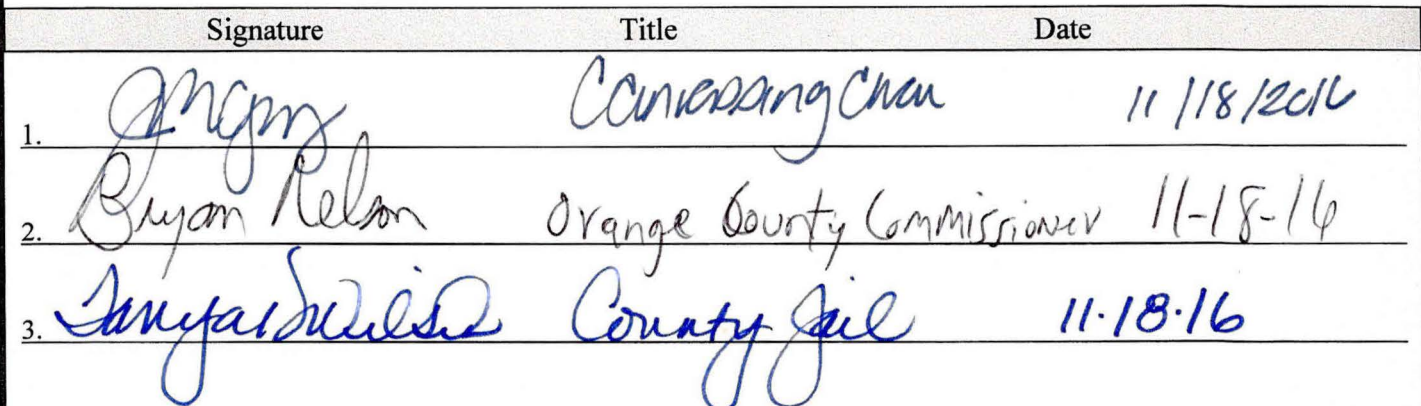 Signature Title Date
1. Canvassing Chair 11/18/2016
2. Bryan Nelson Orange County Commissioner 11-18-16
3. County Jail 11·18·16